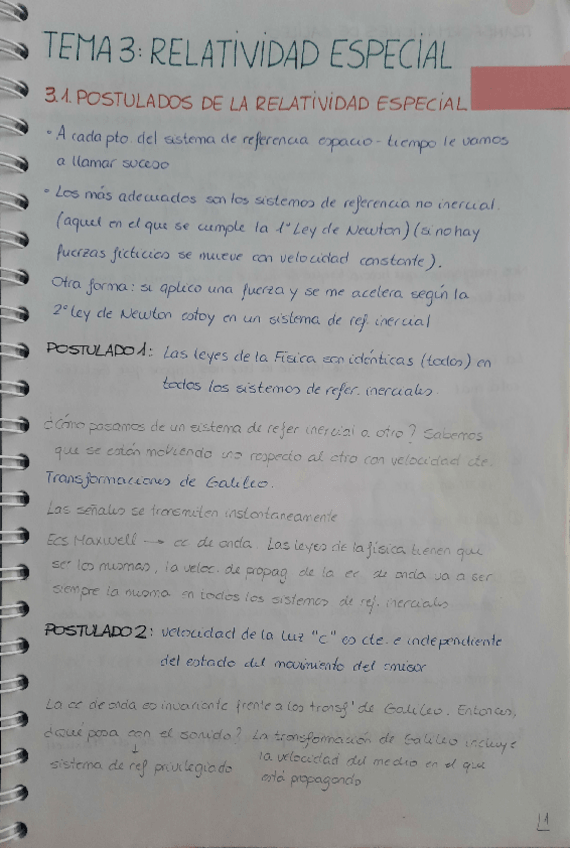 TEMA 3: RELATIVIDAD ESPECIAL
3.1. POSTULADOS DE LA RELATIVIDAD ESPECIAL
• A cada pto del sistema de referencia espacio-tiempo le vamos
a llamar suceso
• Los más adecuados son los sistemas de referencia no inercial.
(aquel en el que se cumple la 1ª Ley de Newton) (si no hay
fuerzas ficticias se mueve con velocidad constante).
Otra forma: si aplico una fuerza y se me acelera según la
2ª Ley de Newton estoy en un sistema de ref. inercial
POSTULADO 1: Las leyes de la Física son idénticas (todas) en
todos los sistemas de refer. inerciales.
¿Cómo pasamos de un sistema de refer inercial a otro? Sabemos
que se están moviendo uno respecto al otro con velocidad cte.
Transformaciones de Galileo.
Las señales se transmiten instantaneamente
Ecs Maxwell → ec de onda. Las leyes de la física tienen que
ser las mismas, la veloc. de propag de la ec de onda va a ser
siempre la misma en todos los sistemas de ref. inerciales
POSTULADO 2: velocidad de la luz "c" es cte. e independiente
del estado del movimiento del emisor
La ec de onda es invariante frente a las transf' de Galileo. Entonces,
¿qué pasa con el sonido? La transformación de Galileo incluye
↓
la velocidad del medio en el que
sistema de ref privilegiado
está propagando
1